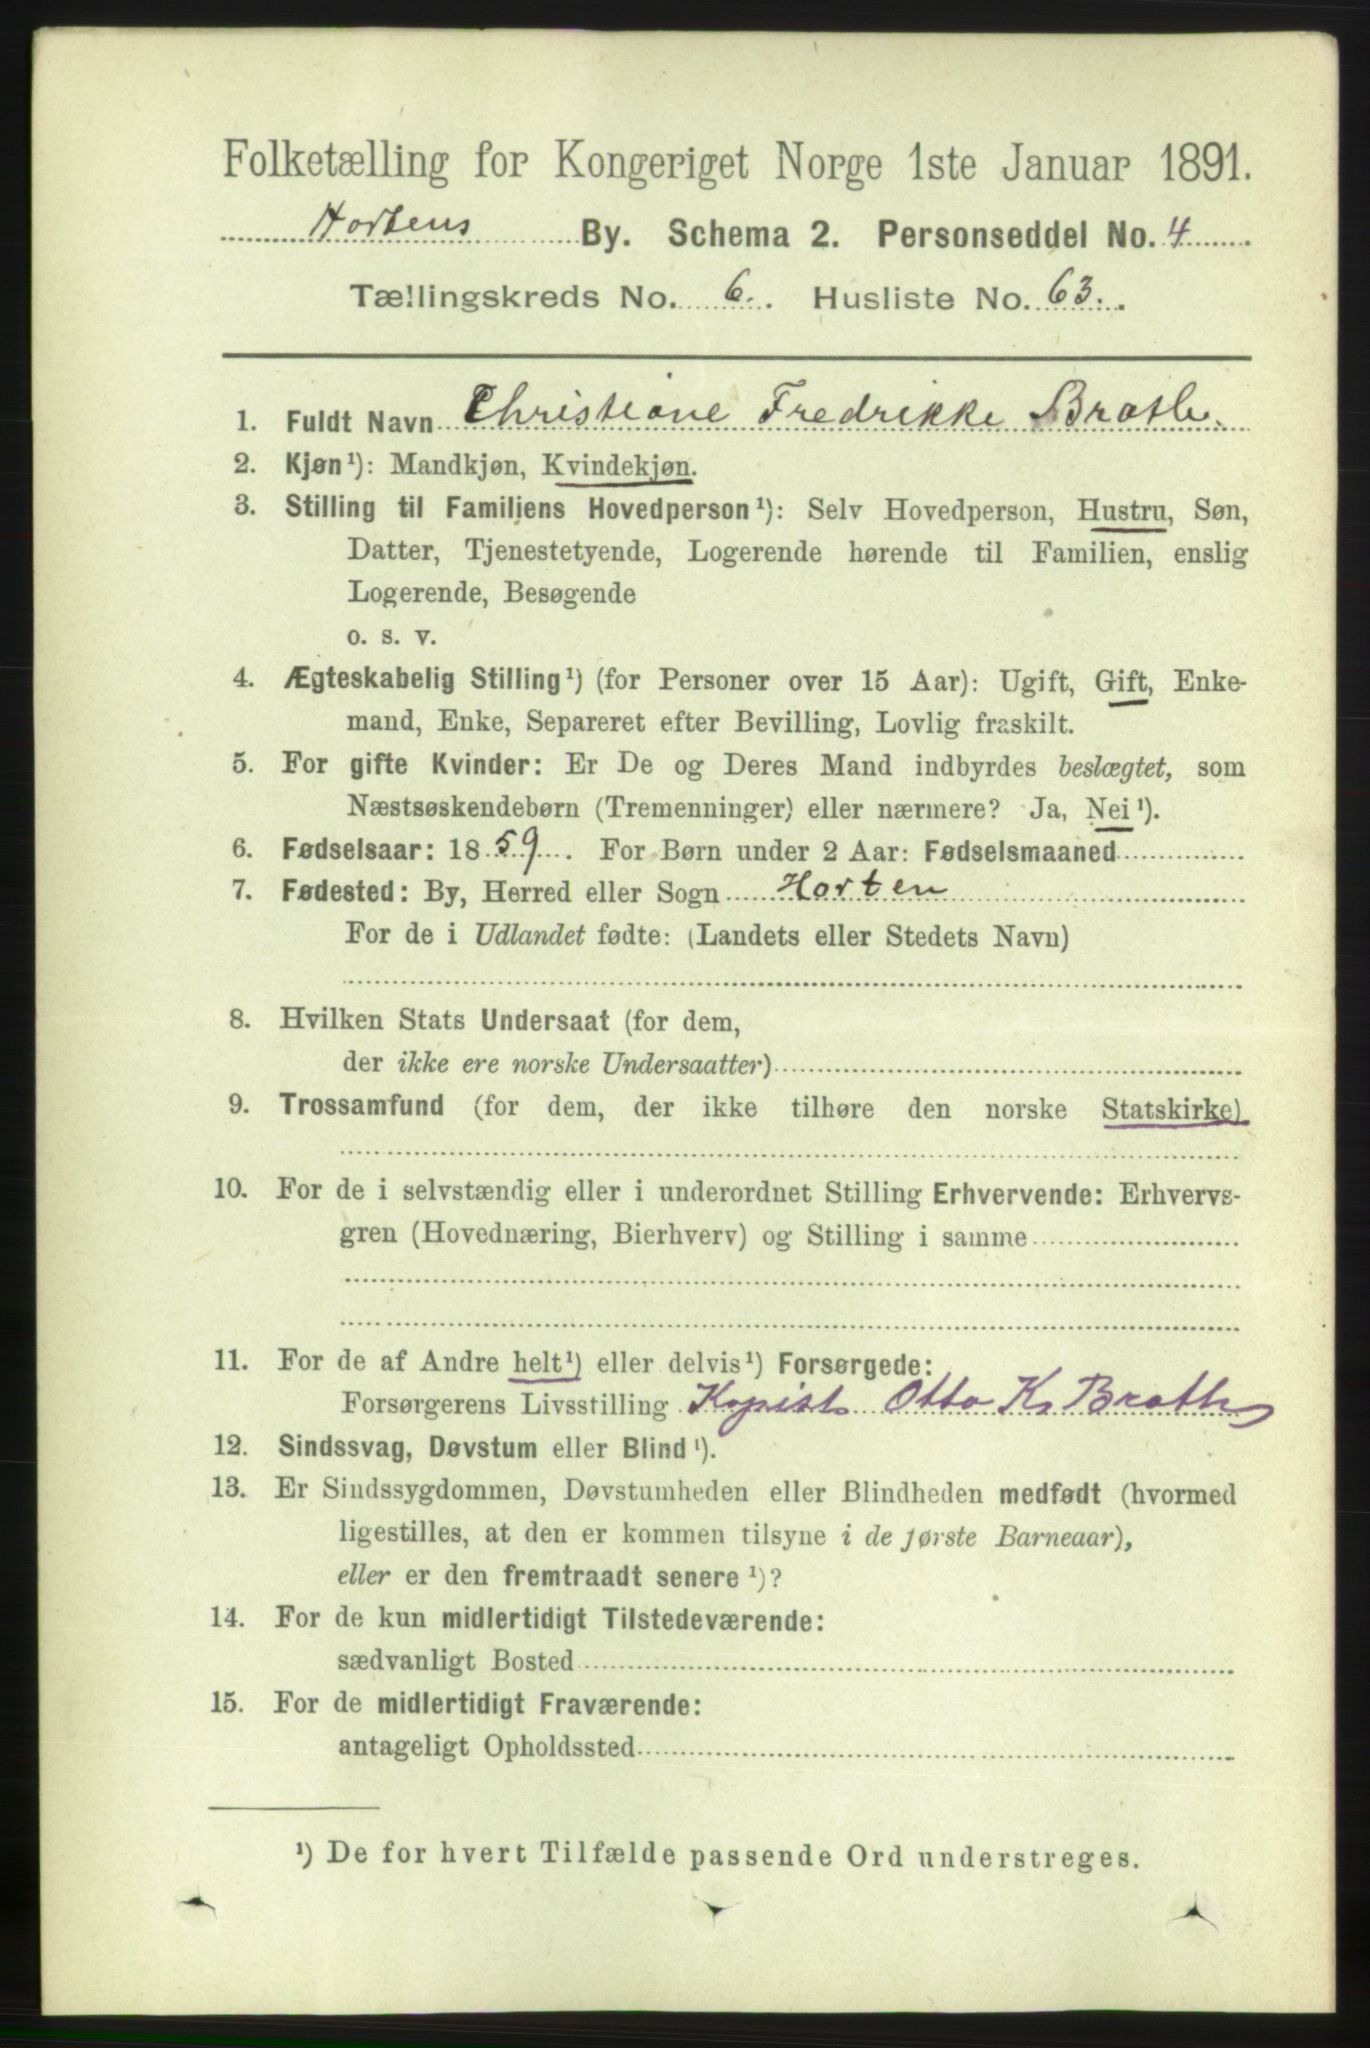 Folketælling for Kongeriget Norge 1ste Januar 1891.
Hortens By. Schema 2. Personseddel No. 4
Tællingskreds No. 6. Husliste No. 63.
1. Fuldt Navn Christiane Fredrikke Broth.
2. Kjøn¹): Mandkjøn, Kvindekjøn.
3. Stilling til Familiens Hovedperson¹): Selv Hovedperson, Hustru, Søn,
Datter, Tjenestetyende, Logerende hørende til Familien, enslig
Logerende, Besøgende
o. s. v.
4. Ægteskabelig Stilling¹) (for Personer over 15 Aar): Ugift, Gift, Enke-
mand, Enke, Separeret efter Bevilling, Lovlig fraskilt.
5. For gifte Kvinder: Er De og Deres Mand indbyrdes beslægtet, som
Næstsøskendebørn (Tremenninger) eller nærmere? Ja, Nei¹).
6. Fødselsaar: 1859. For Børn under 2 Aar: Fødselsmaaned
7. Fødested: By, Herred eller Sogn Horten
For de i Udlandet fødte: (Landets eller Stedets Navn)
8. Hvilken Stats Undersaat (for dem,
der ikke ere norske Undersaatter)
9. Trossamfund (for dem, der ikke tilhøre den norske Statskirke)
10. For de i selvstændig eller i underordnet Stilling Erhvervende: Erhvervs-
gren (Hovednæring, Bierhverv) og Stilling i samme
11. For de af Andre helt¹) eller delvis¹) Forsørgede:
Forsørgerens Livsstilling Kopist Otto K. Broth
12. Sindssvag, Døvstum eller Blind¹).
13. Er Sindssygdommen, Døvstumheden eller Blindheden medfødt (hvormed
ligestilles, at den er kommen tilsyne i de første Barneaar),
eller er den fremtraadt senere¹)?
14. For de kun midlertidigt Tilstedeværende:
sædvanligt Bosted
15. For de midlertidigt Fraværende:
antageligt Opholdssted
¹) De for hvert Tilfælde passende Ord understreges.